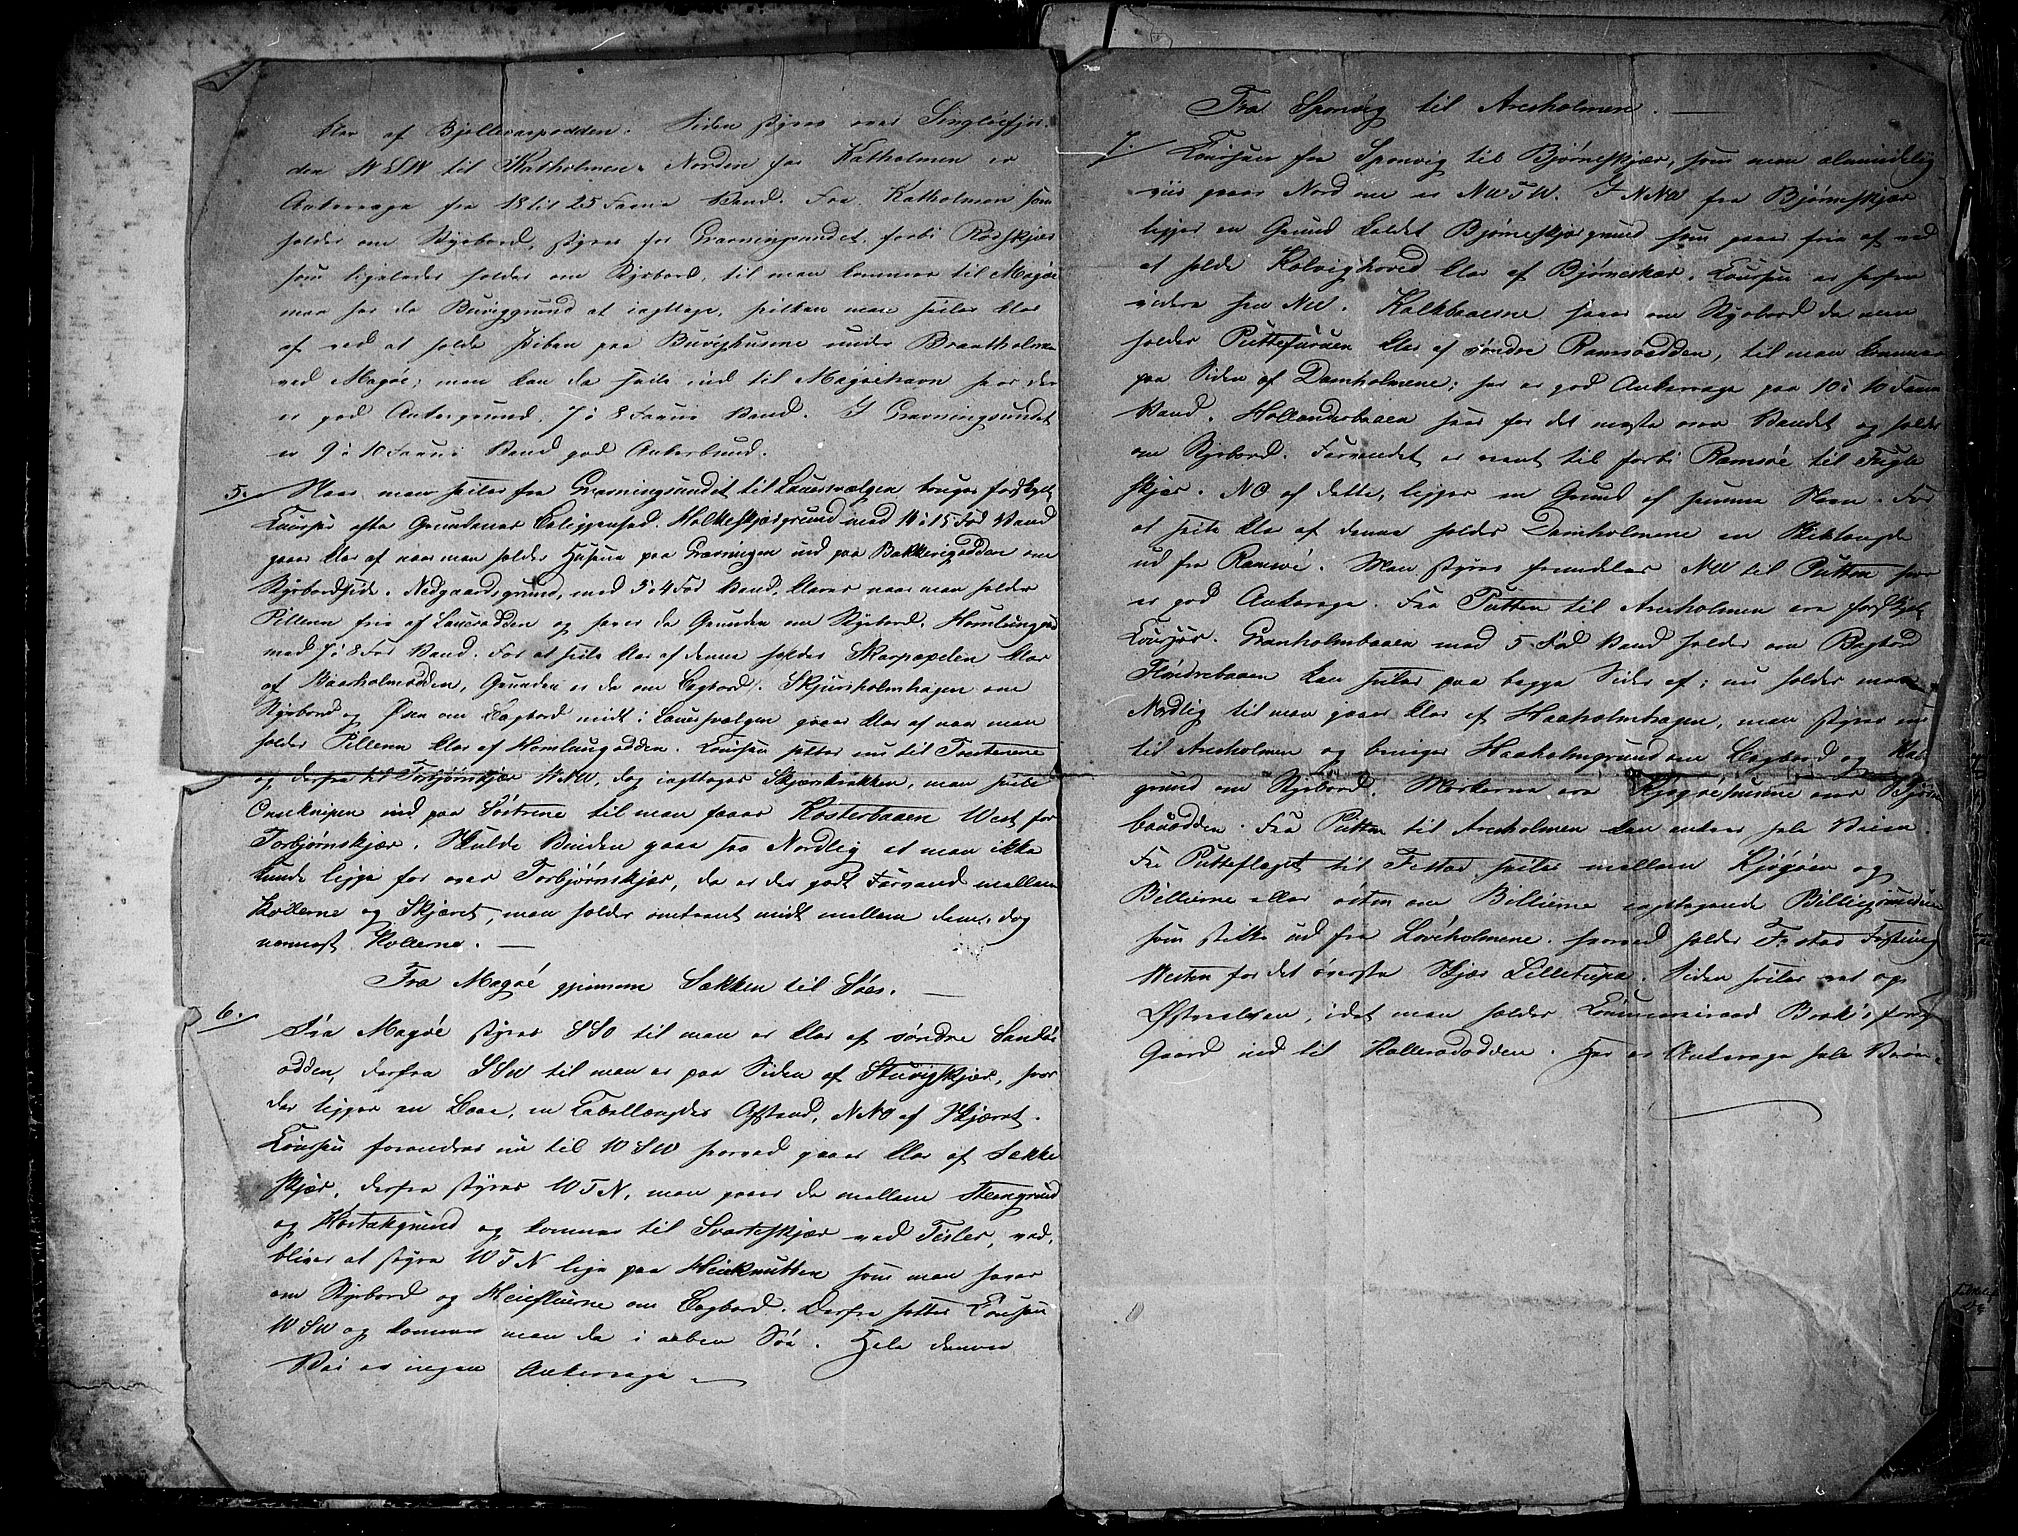 klar af Bjellevarpodden. Siden styres over Singløefjor-
den WSW til Katholmen. Norden for Katholmen er
Ankerage fra 18 til 25 Favne Vand. Fra Katholmen som
holdes om Styrbord, styres for Gravningsundet, forbi Rødskjær
som ligeledes holdes om Styrbord, til man kommer til Magøe
man har da Buviggrund at iagttage, hvilken man seiler klar
af ved at holde Stiben paa Buvighusene under Brantholmen
ved Magøe, man kan da seile ind til Magøehavn hvor der
er god Ankergrund, 7 à 8 Favne Vand. I Gravningsundet
er 9 à 10 Favne Vand god Ankerbund.
5. Naar man seiler fra Gravningsundet til Lauersvælgen bruges forskjel.
Coursser efter Grundenes Beliggenhed. Holkeskjærgrund med 14 à 15 Fod Vand
gaaes klar af naar man holder Husene paa Gravningen ind paa Bakkevigodden om
Styrbordside. Nedgaardsgrund, med 3 à 4 Fod Vand, klares naar man holder
Pillene frie af Lauerodden og haves da Grunden om Styrbord. Homlunggr.
med 7 à 8 Fod Vand. For at seile klar af denne holdes Skarpopelen klar
af Baaeholmodden, Grunden er da om Bagbord. Skjursholmhagen om
Styrbord og Øsen om Bagbord midt i Lauersvælgen gaaes klar af naar man
holder Pillene klar af Homlungodden. Courssen sættes nu til Tresterne
og derfra til Torbjørnskjær WNW, dog iagttages Skjærknækken, man seiler
Oneknipen ind paa Søstrene til man faaer Kosterbaaen West for
Torbjørnskjær. Skulde Vinden gaae saa Nordlig at man ikke
kunde ligge for over Torbjørnskjær, da er der godt Farvand mellem
Kollerne og Skjæret, man holder omtrent midt mellem dem, dog
nærmest Kollerne. —
Fra Magøe gjennem Sækken til Søes. —
6. Fra Magøe styres SSO til man er klar af søndre Sandø
odden, derfra SSW til man er paa Siden af Stuvigskjær, hvor
der ligger en Baae, en Kabellængdes Afstand, NNO af Skjæret.
Courssen forandres nu til WSW hvorved gaaes klar af Sække
skjær, derfra styres WTN, man gaaer da mellem Steengrund
og Kostakgrund og kommer til Svarteskjær ved Tisler, ved-
bliver at styre WTN lige paa Heieknutten som man haver
om Styrbord og Heiefluerne om Bagbord. Derfra sættes Courssen
WSW og kommer man da i aaben Søe. Hele denne
Vei er ingen Ankerage —
Fra Sponvig til Aresholmen. —
7. Courssen fra Sponvig til Bjørneskjær, som man almindelig
viis gaaer Norden om er NWTW. I NNW fra Bjørneskjær
ligger en Grund kaldet Bjørneskjærgrund som gaaes frie af ved
at holde Kolvighoved klar af Bjørneskær. Courssen er herfra
videre hen NW. Kalkbaaerne haves om Styrbord da man
holder Puttefuruen klar af søndre Ramsøodden, til man kommer
paa Siden af Damholmene, her er god Ankerrage paa 10 à 16 Favne
Vand. Hollenderbaaen haves for det meste over Vandet og holdes
om Styrbord. Farvandet er reent til forbi Ramsøe til Fugle
skjær. NO af dette, ligger en Grund af samme Navn. For
at seile klar af denne holdes Damholmene en Skiblængde
ud fra Ramsøe. Man styrer fremdeles NW til Putten hvor
er god Ankerage. Fra Putten til Aresholmen ere forskjel.
Coursser. Granholmbaaen med 5 Fod Vand holdes om Bagbord
Flyndrebaaen kan seiles paa begge Sider af; nu holder man
Nordlig til man gaaer klar af Haaholmhagen, man styrer nu
til Aresholmen og beviger Haaholmgrund om Bagbord og
grund om Styrbord. Mærkerne ere Kjøgøehusene over Bjørne
bauodden. Fra Putten til Aresholmen kan ankres hele Veien.
Fra Putteflaget til Festad seiles mellem Kjøgøen og
Billierne eller østen om Billierne iagttagende Billiegrunden
som stikke ud fra Løvøholmene, hvorved holdes Festad
Westen for det øverste Skjær Lilletupa. Siden seiles ret op
Østerelven, idet man holder Boak's
Gaard ind til Kallerødodden. Her er Ankerage hele Veien.